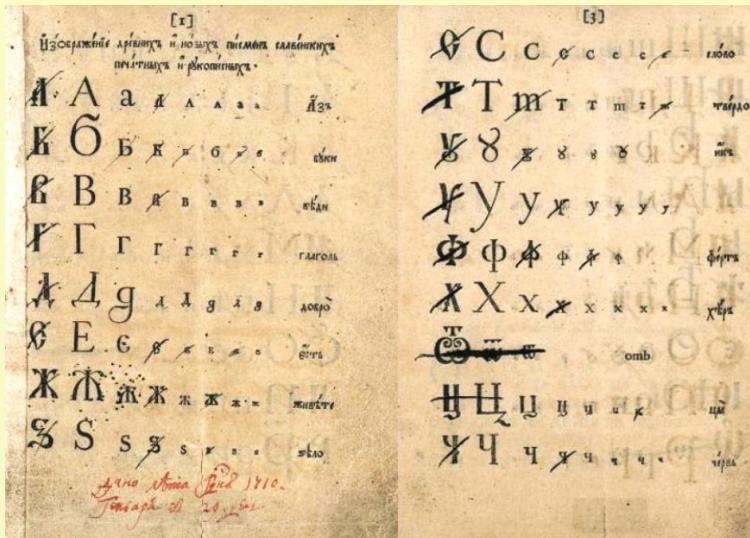 [1]
Изображенїе древнихъ и новыхъ писменъ славенскихъ
печатныхъ и рукописныхъ.
А А а а А А а а азъ
Б Б Б Б Б б б в буки
В В В В В В В В вѣди
Г Г Г Г Г Г Г Г глаголь
Д Д д д д д д д добро
Є Е є є є є є є єсть
Ж Ж Ж Ж Ж Ж Ж Ж живѣте
Ѕ Ѕ ѕ Ѕ ѕ ѕ ѕ ѕ ѕѣло
Дано лѣта 1710.
Генваря 29.
[3]
С С с с с с с с слово
Т Т т т т т т т твердо
Ꙋ Ꙋ ꙋ ꙋ ꙋ ꙋ икъ
У У у у у у у у
Ф ф ф ф ф ф фертъ
Х Х х х х х х х хѣръ
Ѿ ѿ ѿ отъ
Ц Ц ц ц ц ц ц цы
Ч Ч ч ч ч ч ч ч червь